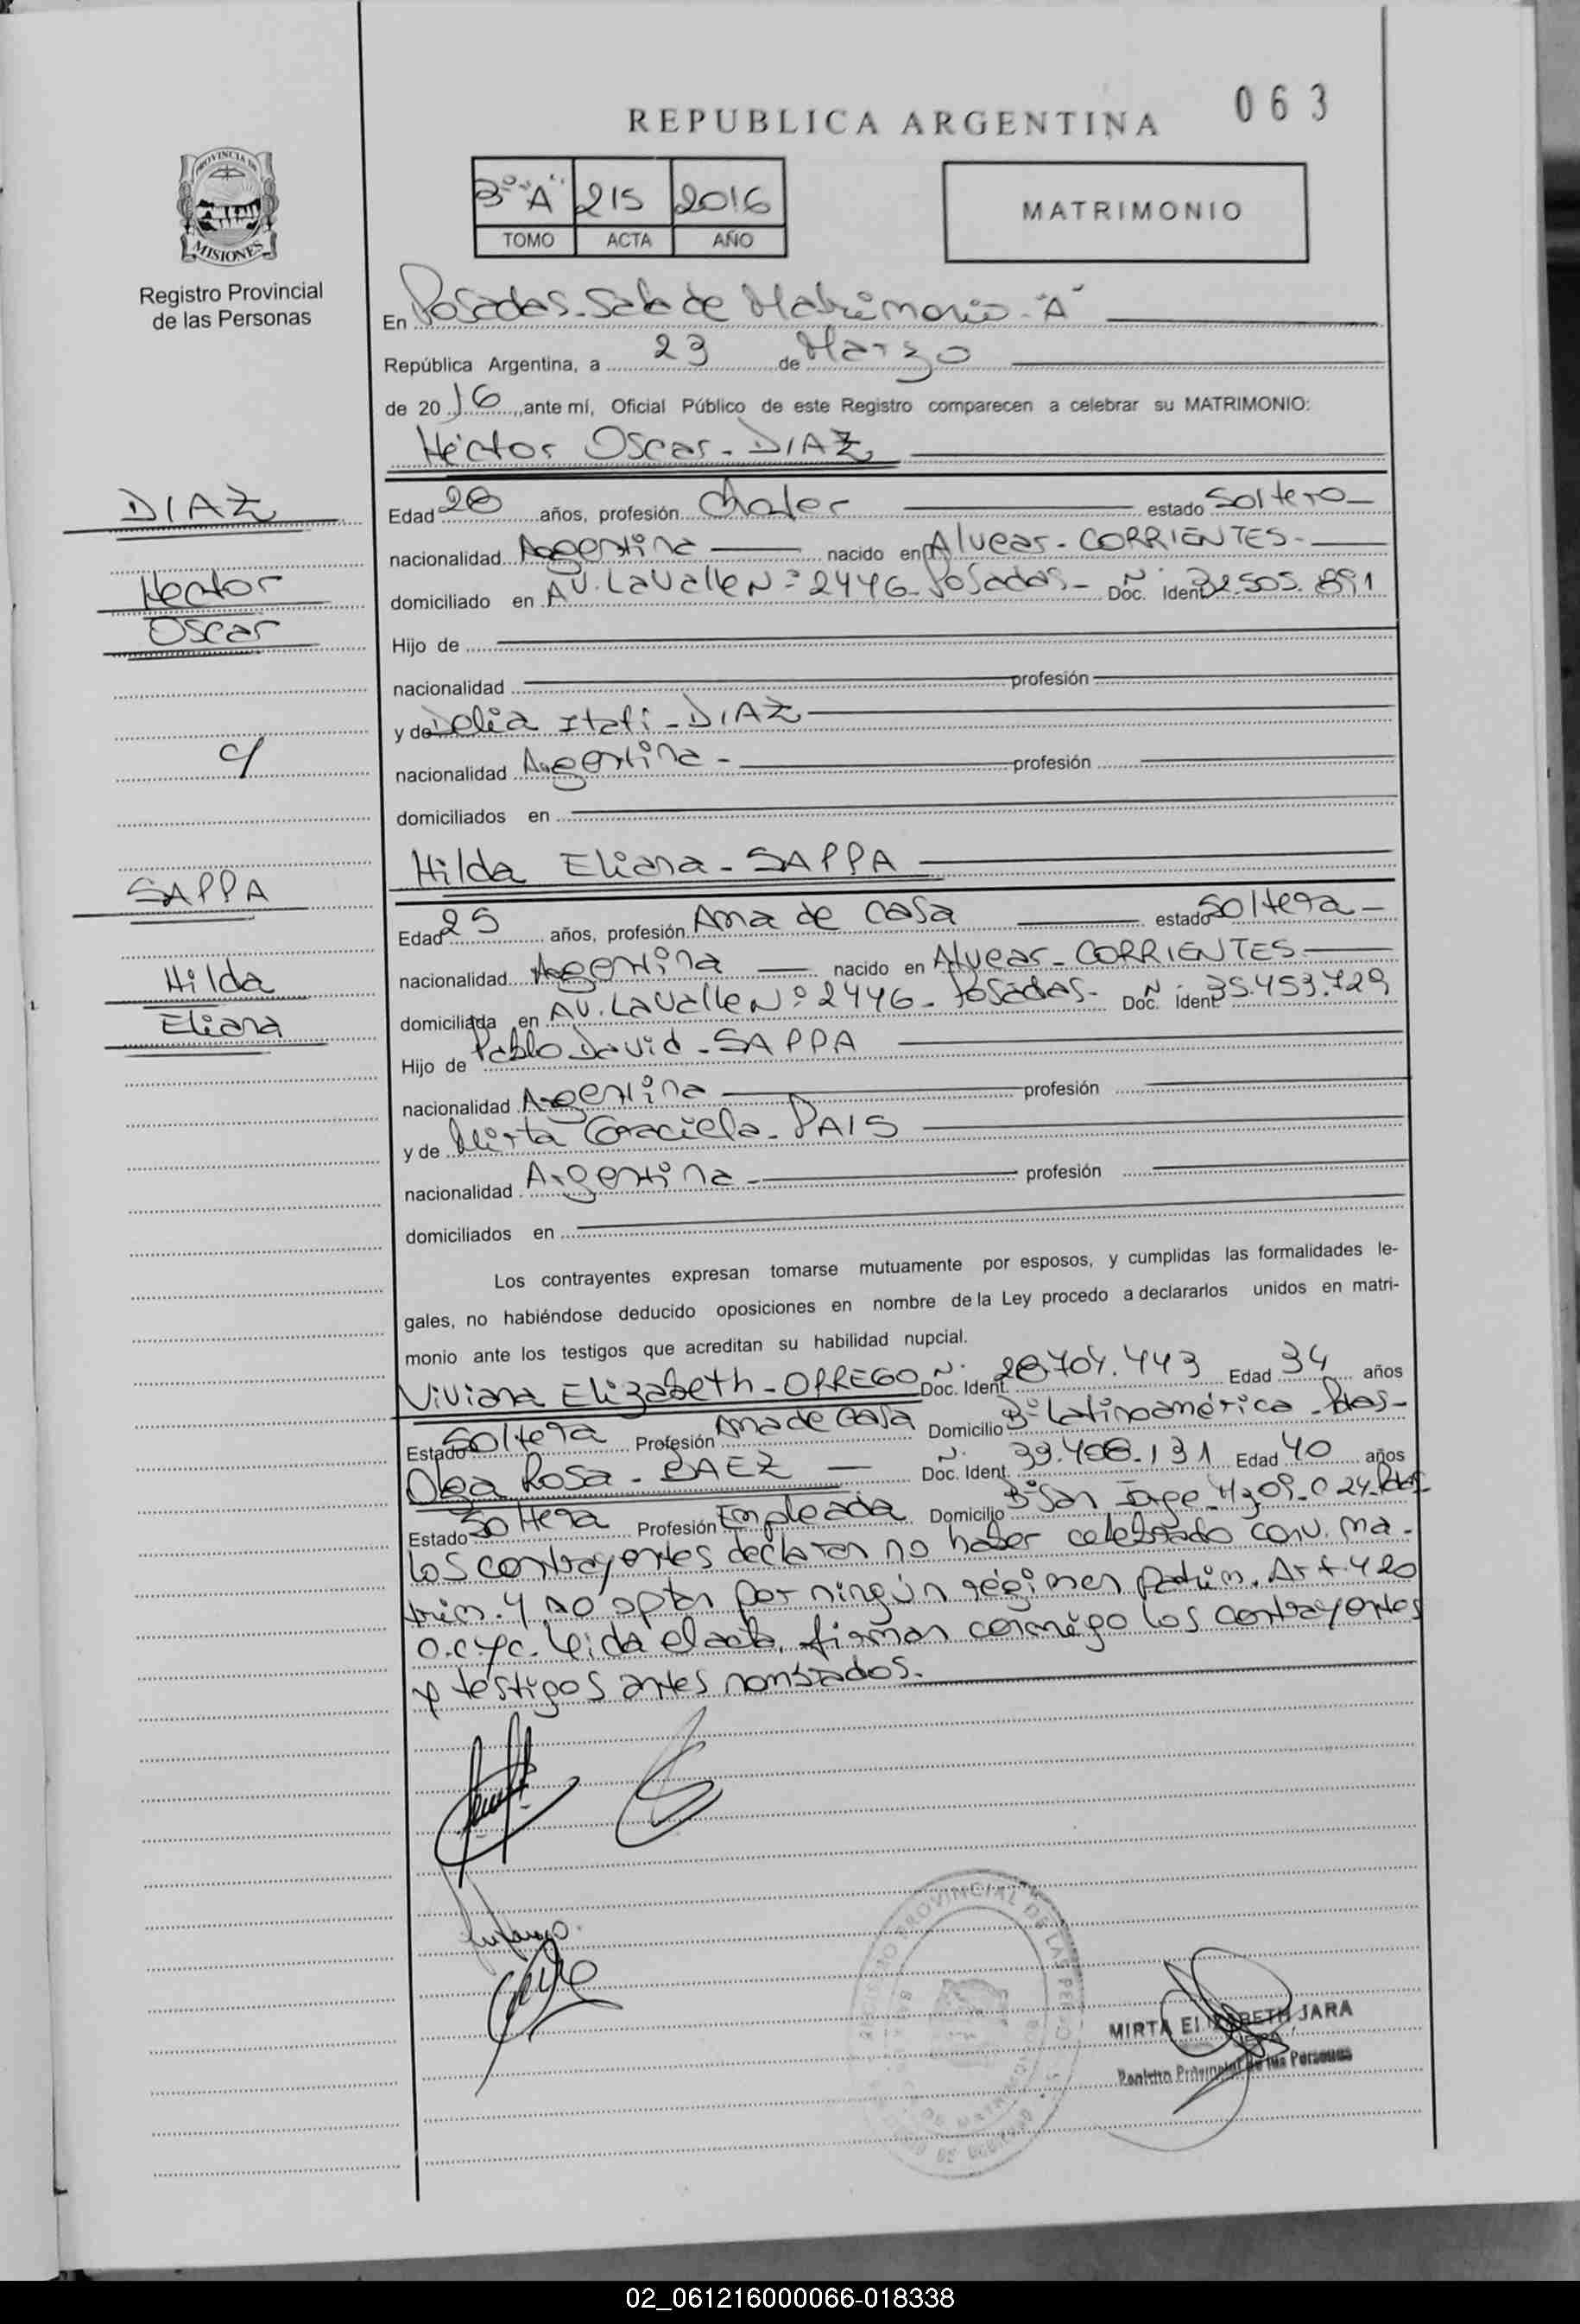 063
REPUBLICA ARGENTINA
3º "A" 215 2016
TOMO ACTA AÑO
MATRIMONIO
PROVINCIA DE
MISIONES
Registro Provincial
de las Personas
En Posadas - Sala de Matrimonio - "A"
República Argentina, a 23 de Marzo
de 2016, ante mí, Oficial Público de este Registro comparecen a celebrar su MATRIMONIO:
Héctor Oscar - DIAZ
DIAZ
Hector
Oscar
c/
SAPPA
Hilda
Eliana
Edad 28 años, profesión Chofer estado Soltero
nacionalidad Argentina nacido en Alvear - CORRIENTES -
domiciliado en AV. Lavalle Nº 2446 - Posadas - Doc. Ident. Nº 32.505.891
Hijo de
nacionalidad profesión
y de Delia Itatí - DIAZ
nacionalidad Argentina - profesión
domiciliados en
Hilda Eliana - SAPPA
Edad 25 años, profesión Ama de casa estado Soltera -
nacionalidad Argentina nacido en Alvear - CORRIENTES -
domiciliada en AV. Lavalle Nº 2446 - Posadas - Doc. Ident. Nº 35.453.729
Hijo de Pablo David - SAPPA
nacionalidad Argentina profesión
y de Mirta Graciela - PAIS
nacionalidad Argentina - profesión
domiciliados en
Los contrayentes expresan tomarse mutuamente por esposos, y cumplidas las formalidades le-
gales, no habiéndose deducido oposiciones en nombre de la Ley procedo a declararlos unidos en matri-
monio ante los testigos que acreditan su habilidad nupcial.
Viviana Elizabeth - ORREGO Doc. Ident. Nº 28.704.443 Edad 34 años
Estado Soltera Profesión Ama de Casa Domicilio Bº Latinoamérica - Pdas -
Olga Rosa - BAEZ Doc. Ident. Nº 39.408.131 Edad 40 años
Estado Soltera Profesión Empleada Domicilio Bº San Jorge - Mz 09 - C 24 - Pdas -
Los contrayentes declaran no haber celebrado conv. ma-
trim. y no optan por ningún régimen patrim. Art. 420
C.C.yC. Leida el acta, firman conmigo los contrayentes
y testigos antes nombrados.
MIRTA ELIZABETH JARA
Registro Provincial de las Personas
02_061216000066-018338